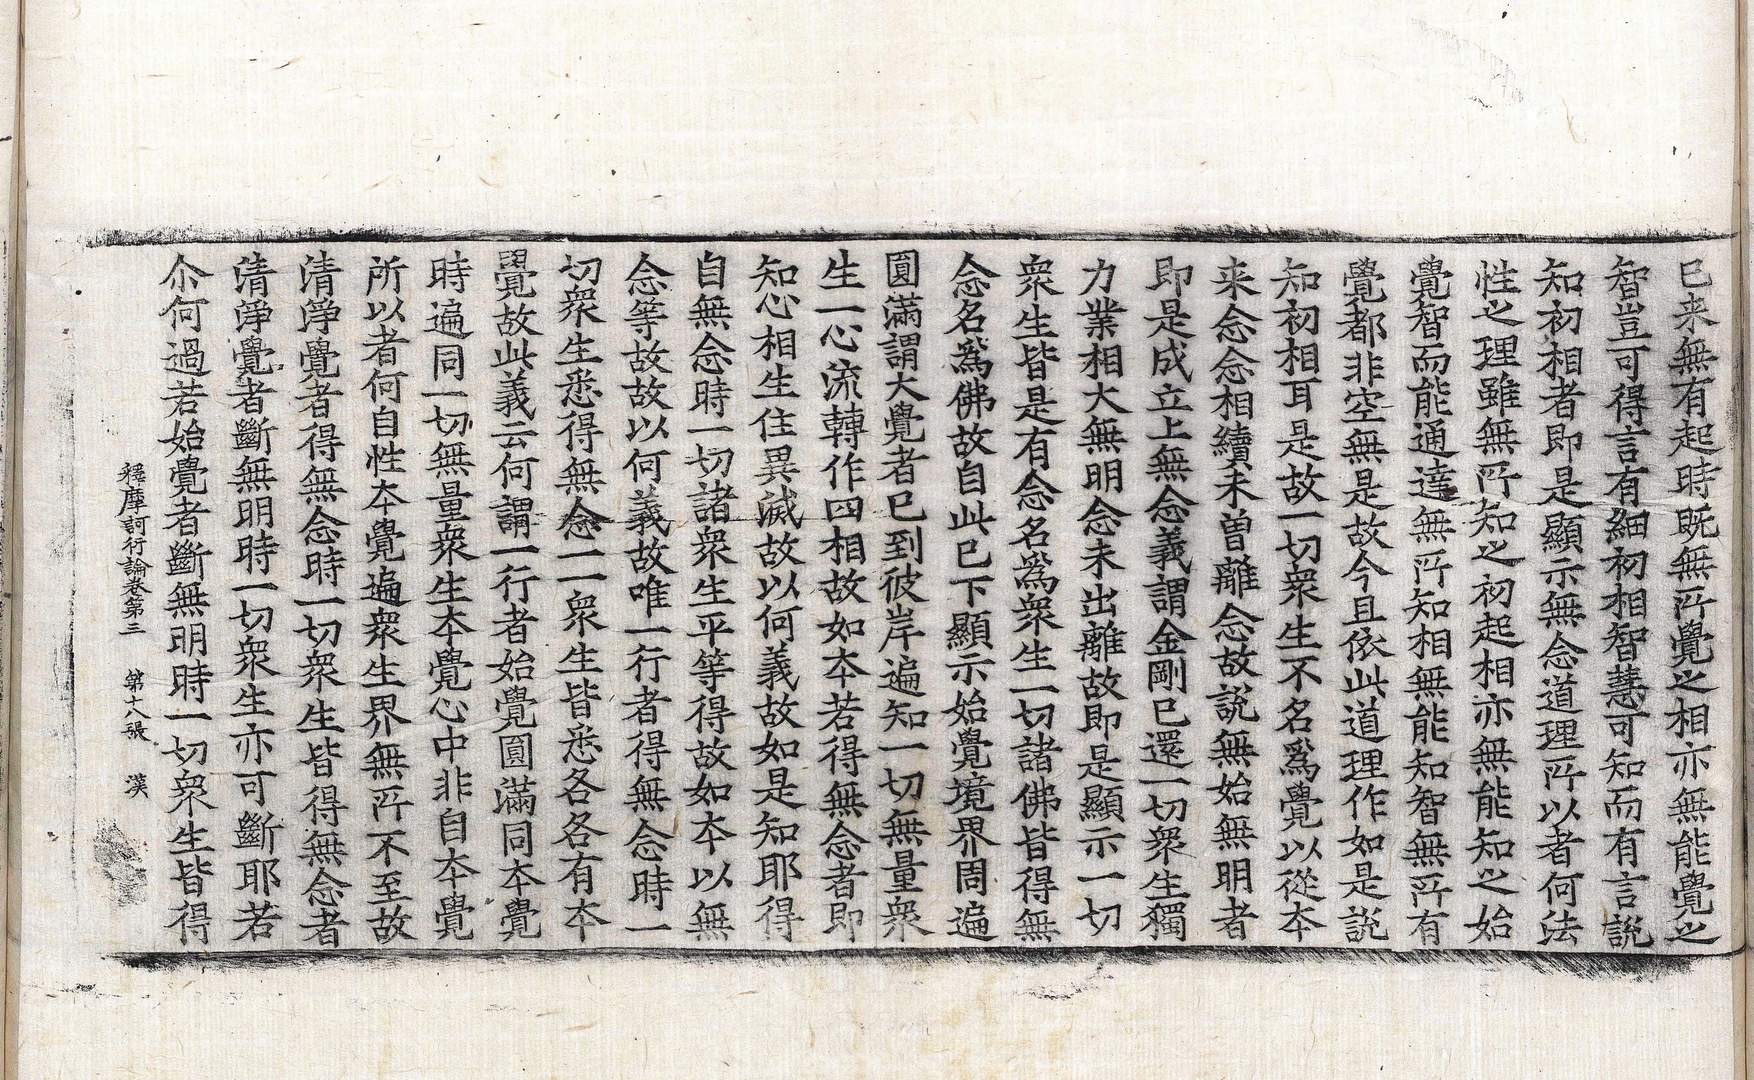 已来無有起時旣無所覺之相亦無能覺之
智豈可得言有細初相智慧可知而有言說
知初相者即是顯示無念道理所以者何法
性之理雖無所知之初起相亦無能知之始
覺智而能通達無所知相無能知智無所有
覺都非空無是故今且依此道理作如是說
知初相耳是故一切衆生不名爲覺以從本
来念念相續未曽離念故說無始無明者
即是成立上無念義謂金剛已還一切衆生獨
力業相大無明念未出離故即是顯示一切
衆生皆是有念名爲衆生一切諸佛皆得無
念名爲佛故自此已下顯示始覺境界周遍
圓滿謂大覺者已到彼岸遍知一切無量衆
生一心流轉作四相故如本若得無念者即
知心相生住異滅故以何義故如是知耶得
自無念時一切諸衆生平等得故如本以無
念等故故以何義故唯一行者得無念時一
切衆生悉得無念一一衆生皆悉各各有本
覺故此義云何謂一行者始覺圓滿同本覺
時遍同一切無量衆生本覺心中非自本覺
所以者何自性本覺遍衆生界無所不至故
清淨覺者得無念時一切衆生皆得無念者
清淨覺者斷無明時一切衆生亦可斷耶若
尒何過若始覺者斷無明時一切衆生皆得
釋摩訶衍論卷第三　第十八張　漢